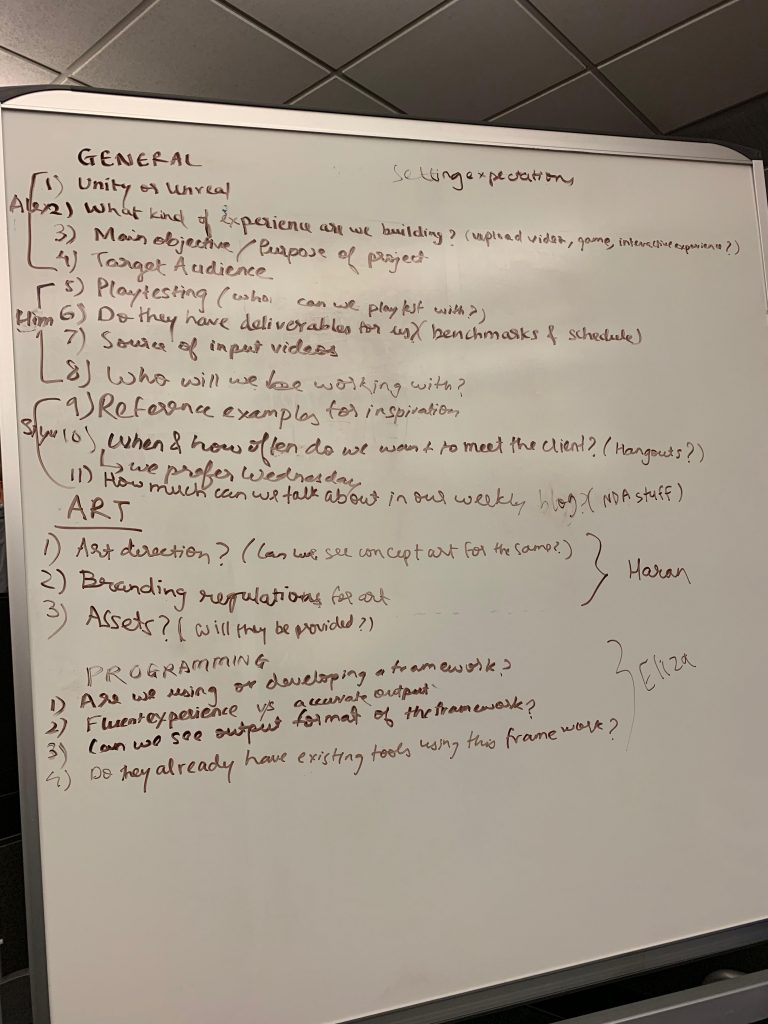 GENERAL
Setting expectations
1) Unity or Unreal
Alex 2) What kind of experience are we building? (upload video, game, interactive experience?)
3) Main objective / Purpose of project
4) Target Audience
5) Playtesting (who can we playtest with?)
Him 6) Do they have deliverables for us? (benchmarks & schedule)
7) Source of input videos
8) Who will we be working with?
9) Reference examples for inspiration
10) When & how often do we want to meet the client? (Hangouts?)
↳ we prefer Wednesday
11) How much can we talk about in our weekly blog? (NDA stuff)
ART
1) Art direction? (Can we see concept art for the same?)
2) Branding regulations for art
Haran
3) Assets? (Will they be provided?)
PROGRAMMING
1) Are we using or developing a framework?
Eliza
2) Fluent experience v/s accurate output
3) Can we see output format of the framework?
4) Do they already have existing tools using this framework?